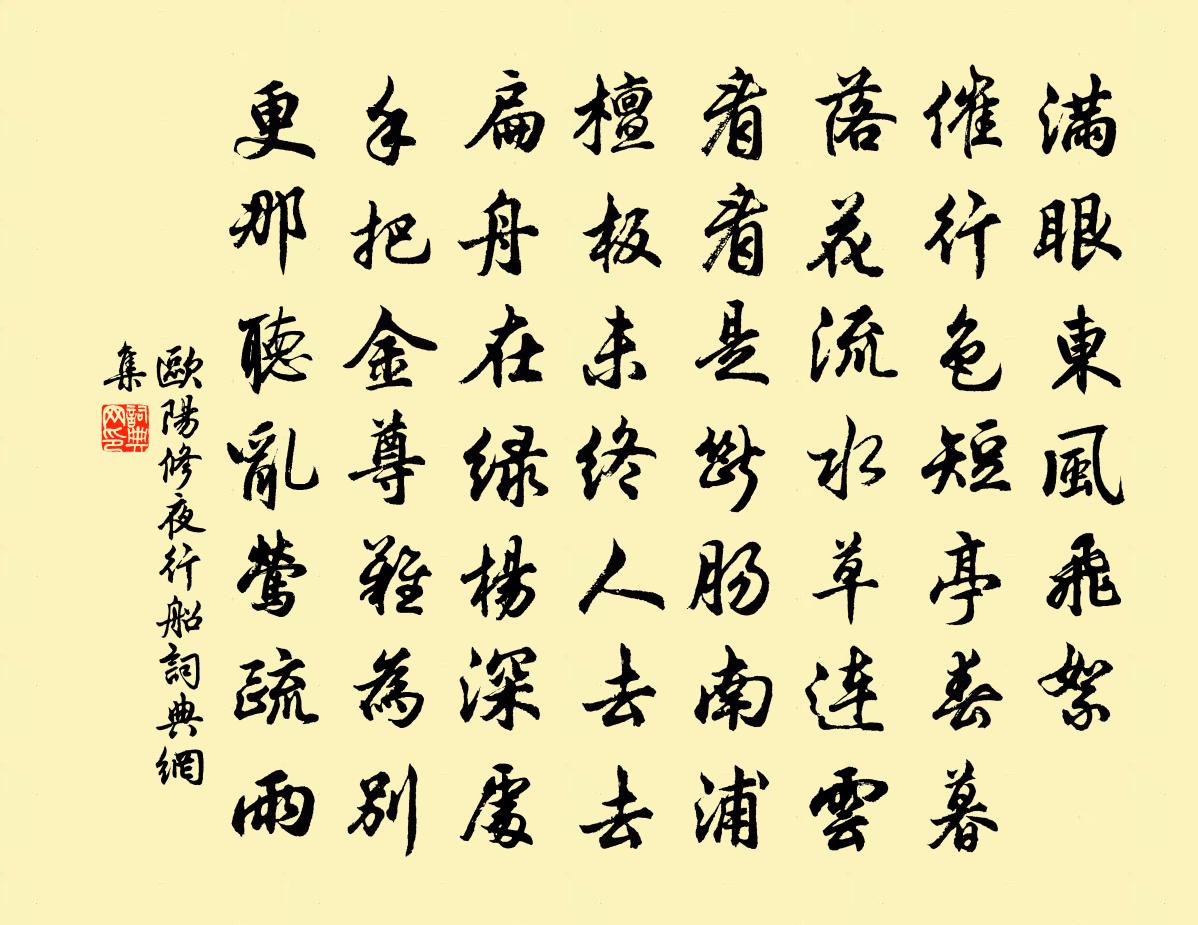 滿眼東風飛絮
催行色短亭春暮
落花流水草連雲
看看是斷腸南浦
檀板未終人去去
扁舟在綠楊深處
手把金尊難為別
更那聽亂鶯疏雨
歐陽修夜行船詞典網
集
詞典網印